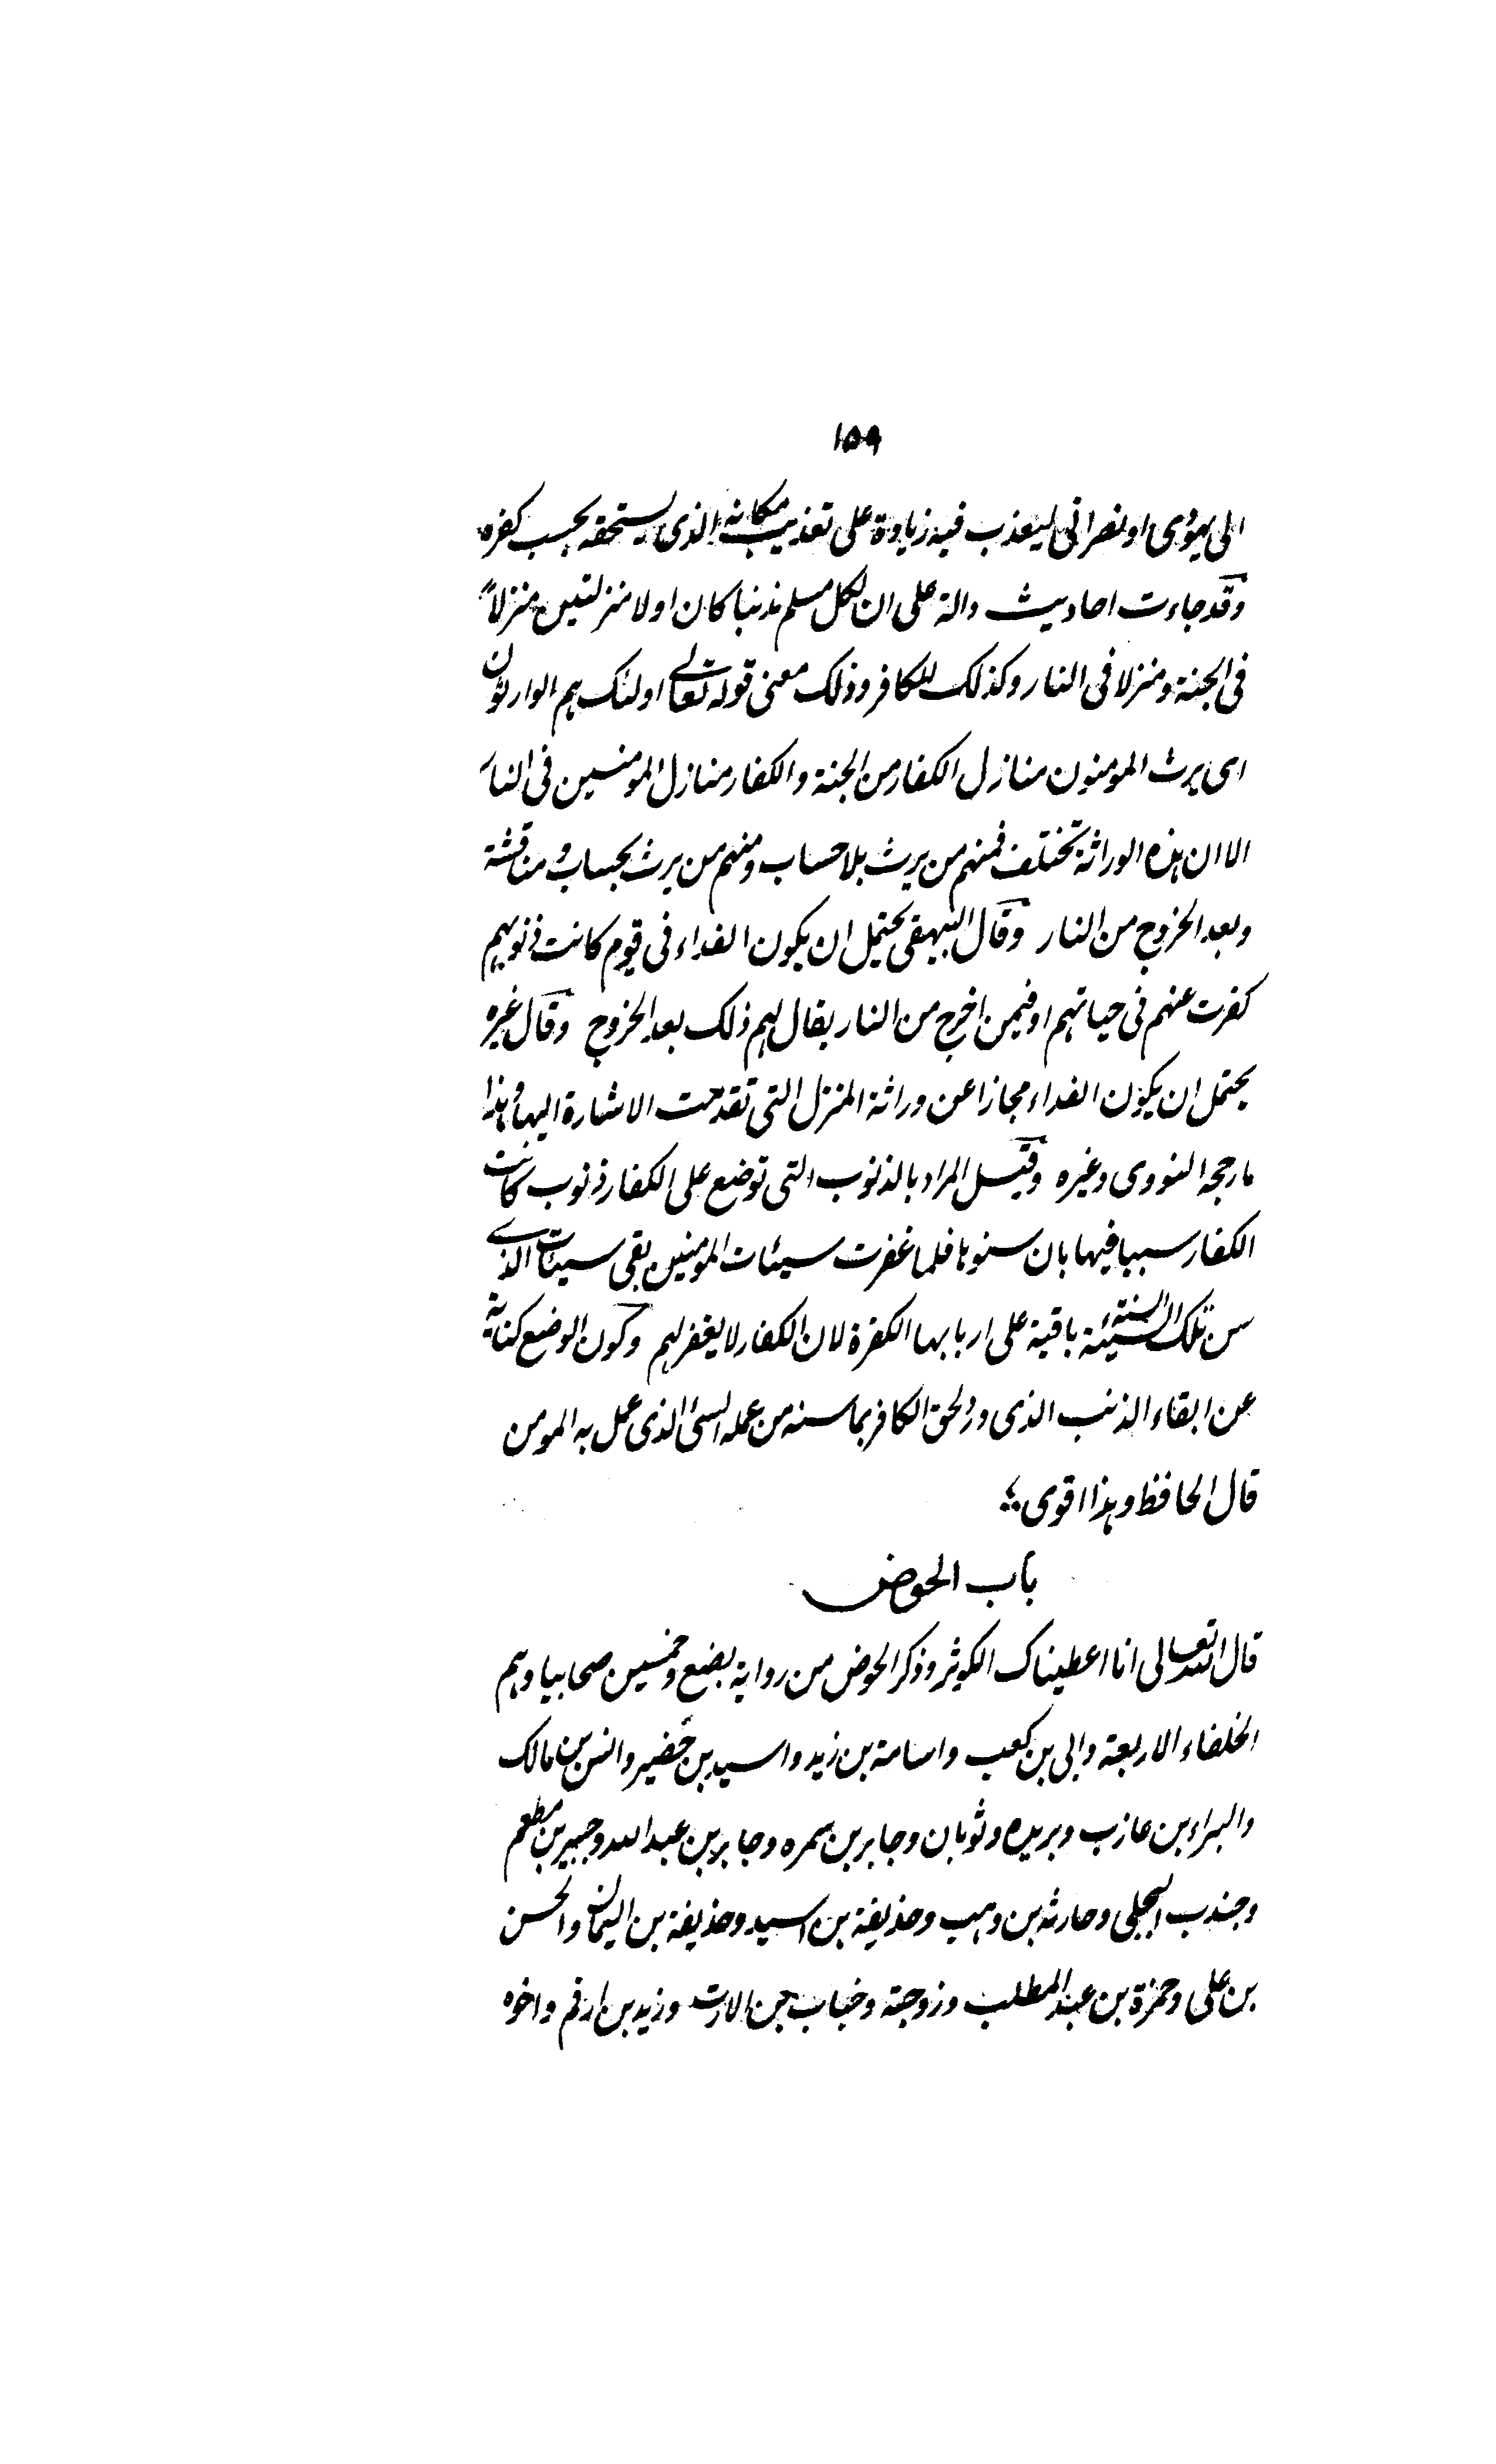 ١٥٩
الى يهودى او نصرانى ليعذب فيه زيادة على تعذيب مكانه الذى يستحقه بحسب كفره
وقد جاءت احاديث دالة على ان لكل مسلم مذنبا كان او لا منزلتين منزلاً
فى الجنة ومنزلا فى النار وكذلك للكافر وذلك معنى قوله تعالى اولئك هم الوارثون
اى يرث المومنون منازل الكفار من الجنة والكفار منازل المومنين فى النار
الا ان هذه الوراثة تختلف فمنهم من يرث بلا حساب ومنهم من يرث بحساب ومناقشة
وبعد الخروج من النار وقال البيهقى يحتمل ان يكون الفداء فى قوم كانت ذنوبهم
كفرت عنهم فى حياتهم او فيمن اخرج من النار يقال لهم ذلك بعد الخروج وقال غيره
يحتمل ان يكون الفداء مجازا عن وراثة المنزل التى تقدمت الاشارة اليها وهذا
ما رجحه النووى وغيره وقيل المراد بالذنوب التى توضع على الكفار ذنوب كانت
الكفار سببا فيها بان سنوها فلما غفرت سيئات المومنين بقى سيئات الذى
سن تلك السنة السيئة باقية على اربابها الكفرة لان الكفار لا يغفر لهم وكون الوضع كناية
عن ابقاء الذنب الذى ورد لحق الكافر بما سنه من عمله السئ الذى عمل به المومن
قال الحافظ وهذا اقوى ؛
باب الحوض
قال الله تعالى انا اعطيناك الكوثر وذكر الحوض من رواية بضع وخمسين صحابيا وهم
الخلفاء الاربعة وابى بن كعب واسامة بن زيد واسيد بن حُضير وانس بن مالك
والبراء بن عازب وبريده وثوبان وجابر بن سمره وجابر بن عبد الله وجبير بن مطعم
وجندب البجلى وحارثه بن وهب وحذيفة بن اسيد وحذيفة بن اليمان والحسن
بن على وحمزة بن عبد المطلب وزوجته وخباب بن الارت وزيد بن ارقم واخوه